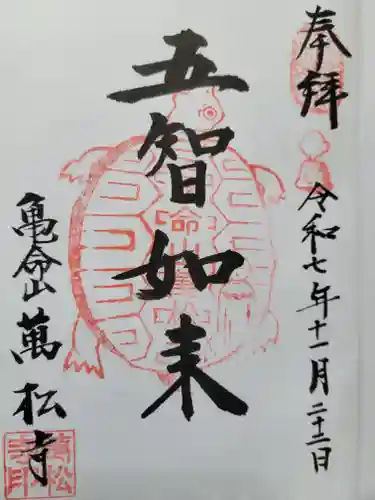 奉拝
令和七年十一月二十二日
五智如来
亀命山
萬松寺
萬松
寺印